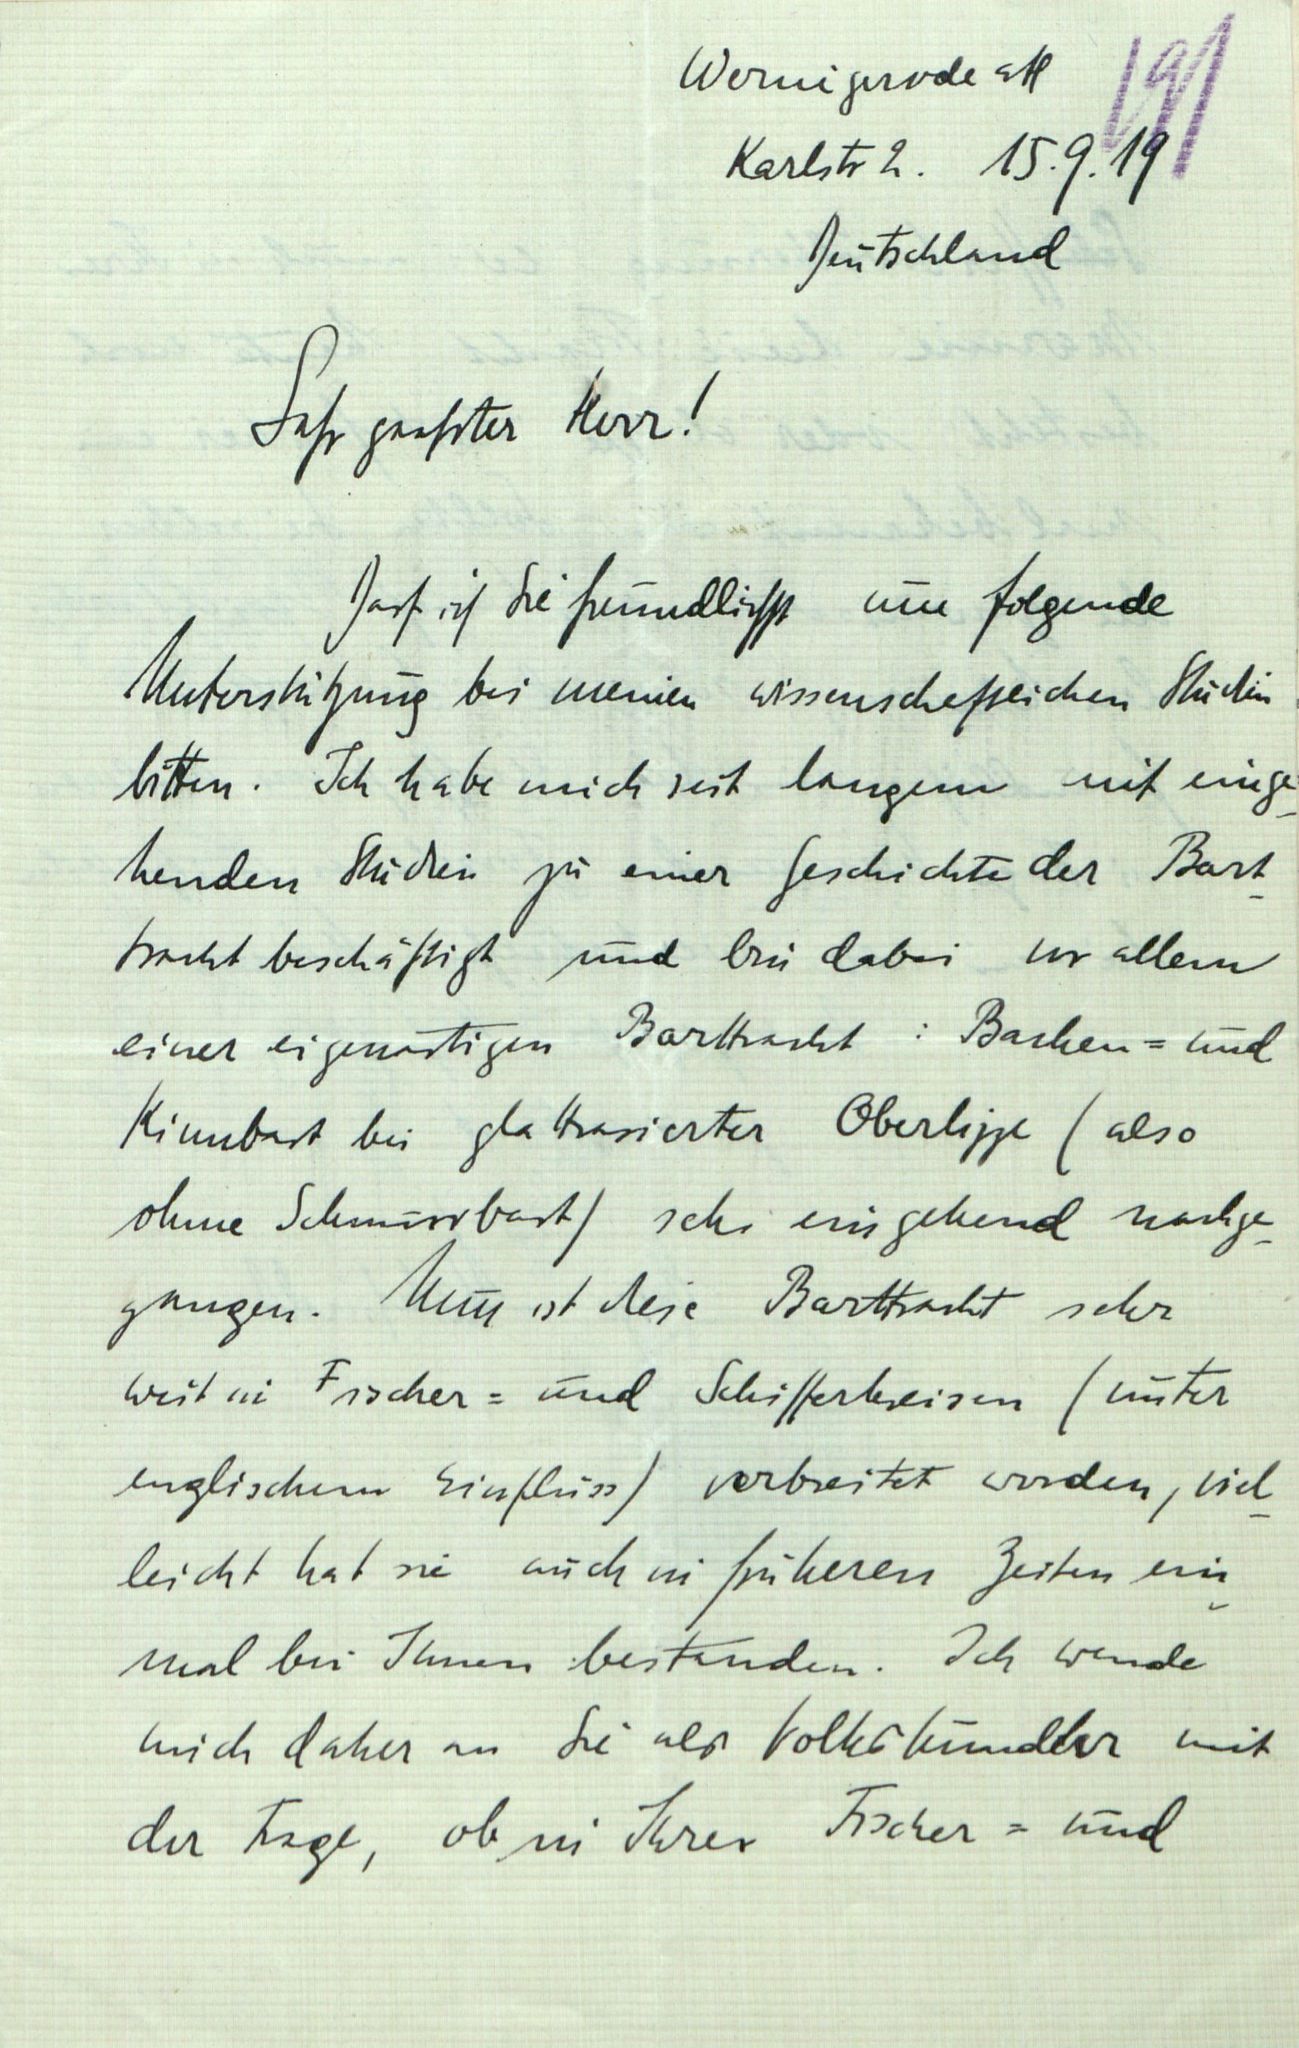 191
Wernigerode a/H
Karlstr 2. 15.9.19
Deutschland
Sehr geehrter Herr!
Darf ich Sie freundlichst um folgende
Unterstützung bei meinen wissenschaftlichen Studien
bitten. Ich habe mich seit langem mit einge-
henden Studien zu einer Geschichte der Bart-
tracht beschäftigt und bin dabei vor allem
einer eigenartigen Barttracht : Backen= und
Kinnbart bei glattrasierter Oberlippe (also
ohne Schnurrbart) sehr eingehend nachge-
gangen. Nun ist diese Barttracht sehr
weit in Fischer= und Schifferkreisen (unter
englischem Einfluss) verbreitet worden, viel-
leicht hat sie auch in früheren Zeiten ein-
mal bei Ihnen bestanden. Ich wende
mich daher an Sie als Volkskundler mit
der Frage, ob in Ihrer Fischer= und